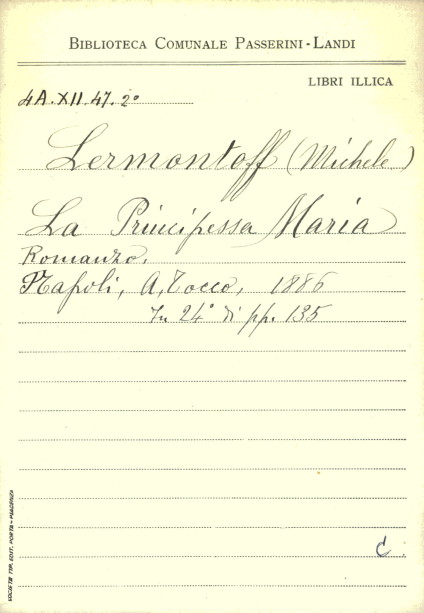 BIBLIOTECA COMUNALE PASSERINI-LANDI
LIBRI ILLICA
4A.XII.47.2º
Lermontoff (Michele)
La Principessa Maria
Romanzo.
Napoli, A. Tocco, 1886
In 24º di pp. 135
C.
SOCIETÀ TIP. EDIT. PORTA - PIACENZA